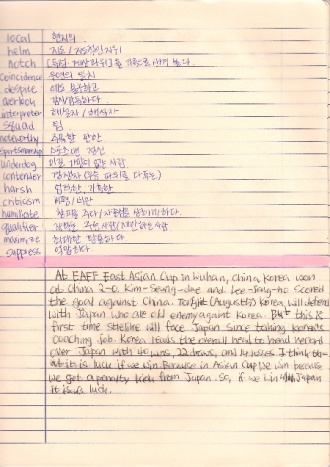 local 현지의
helm 지도/지도적인 지위
notch
coincidence 우연의 일치
despite 에도 불구하고
overboy
interpreter 해설자/해석자
squad 팀
noteworthy 주목할 만한
sportsmanship 스포츠맨 정신
underdog
contender 경쟁자
harsh 엄격한, 가혹한
criticism 비평/비난
humiliate
qualifier
maximize 최대한
suppress 억압하다.
At EAFF East Asian Cup in Wuhan, China, Korea won
at China 2-0. Kim-Seung-dae and Lee-Jong-ho scored
the goal against China. Tonight (August5) Korea will defend
with Japan who are old enemy against Korea. But this is
first time stielike will face Japan since taking korea's
coaching job. Korea leads the overall head to head record
over Japan with 40 wins, 22 draws, and 14 losses. I think
it is luck if we win. Because in Asian Cup we win because
we get a penalty kick from Japan. So, if we win Japan
it is a luck.